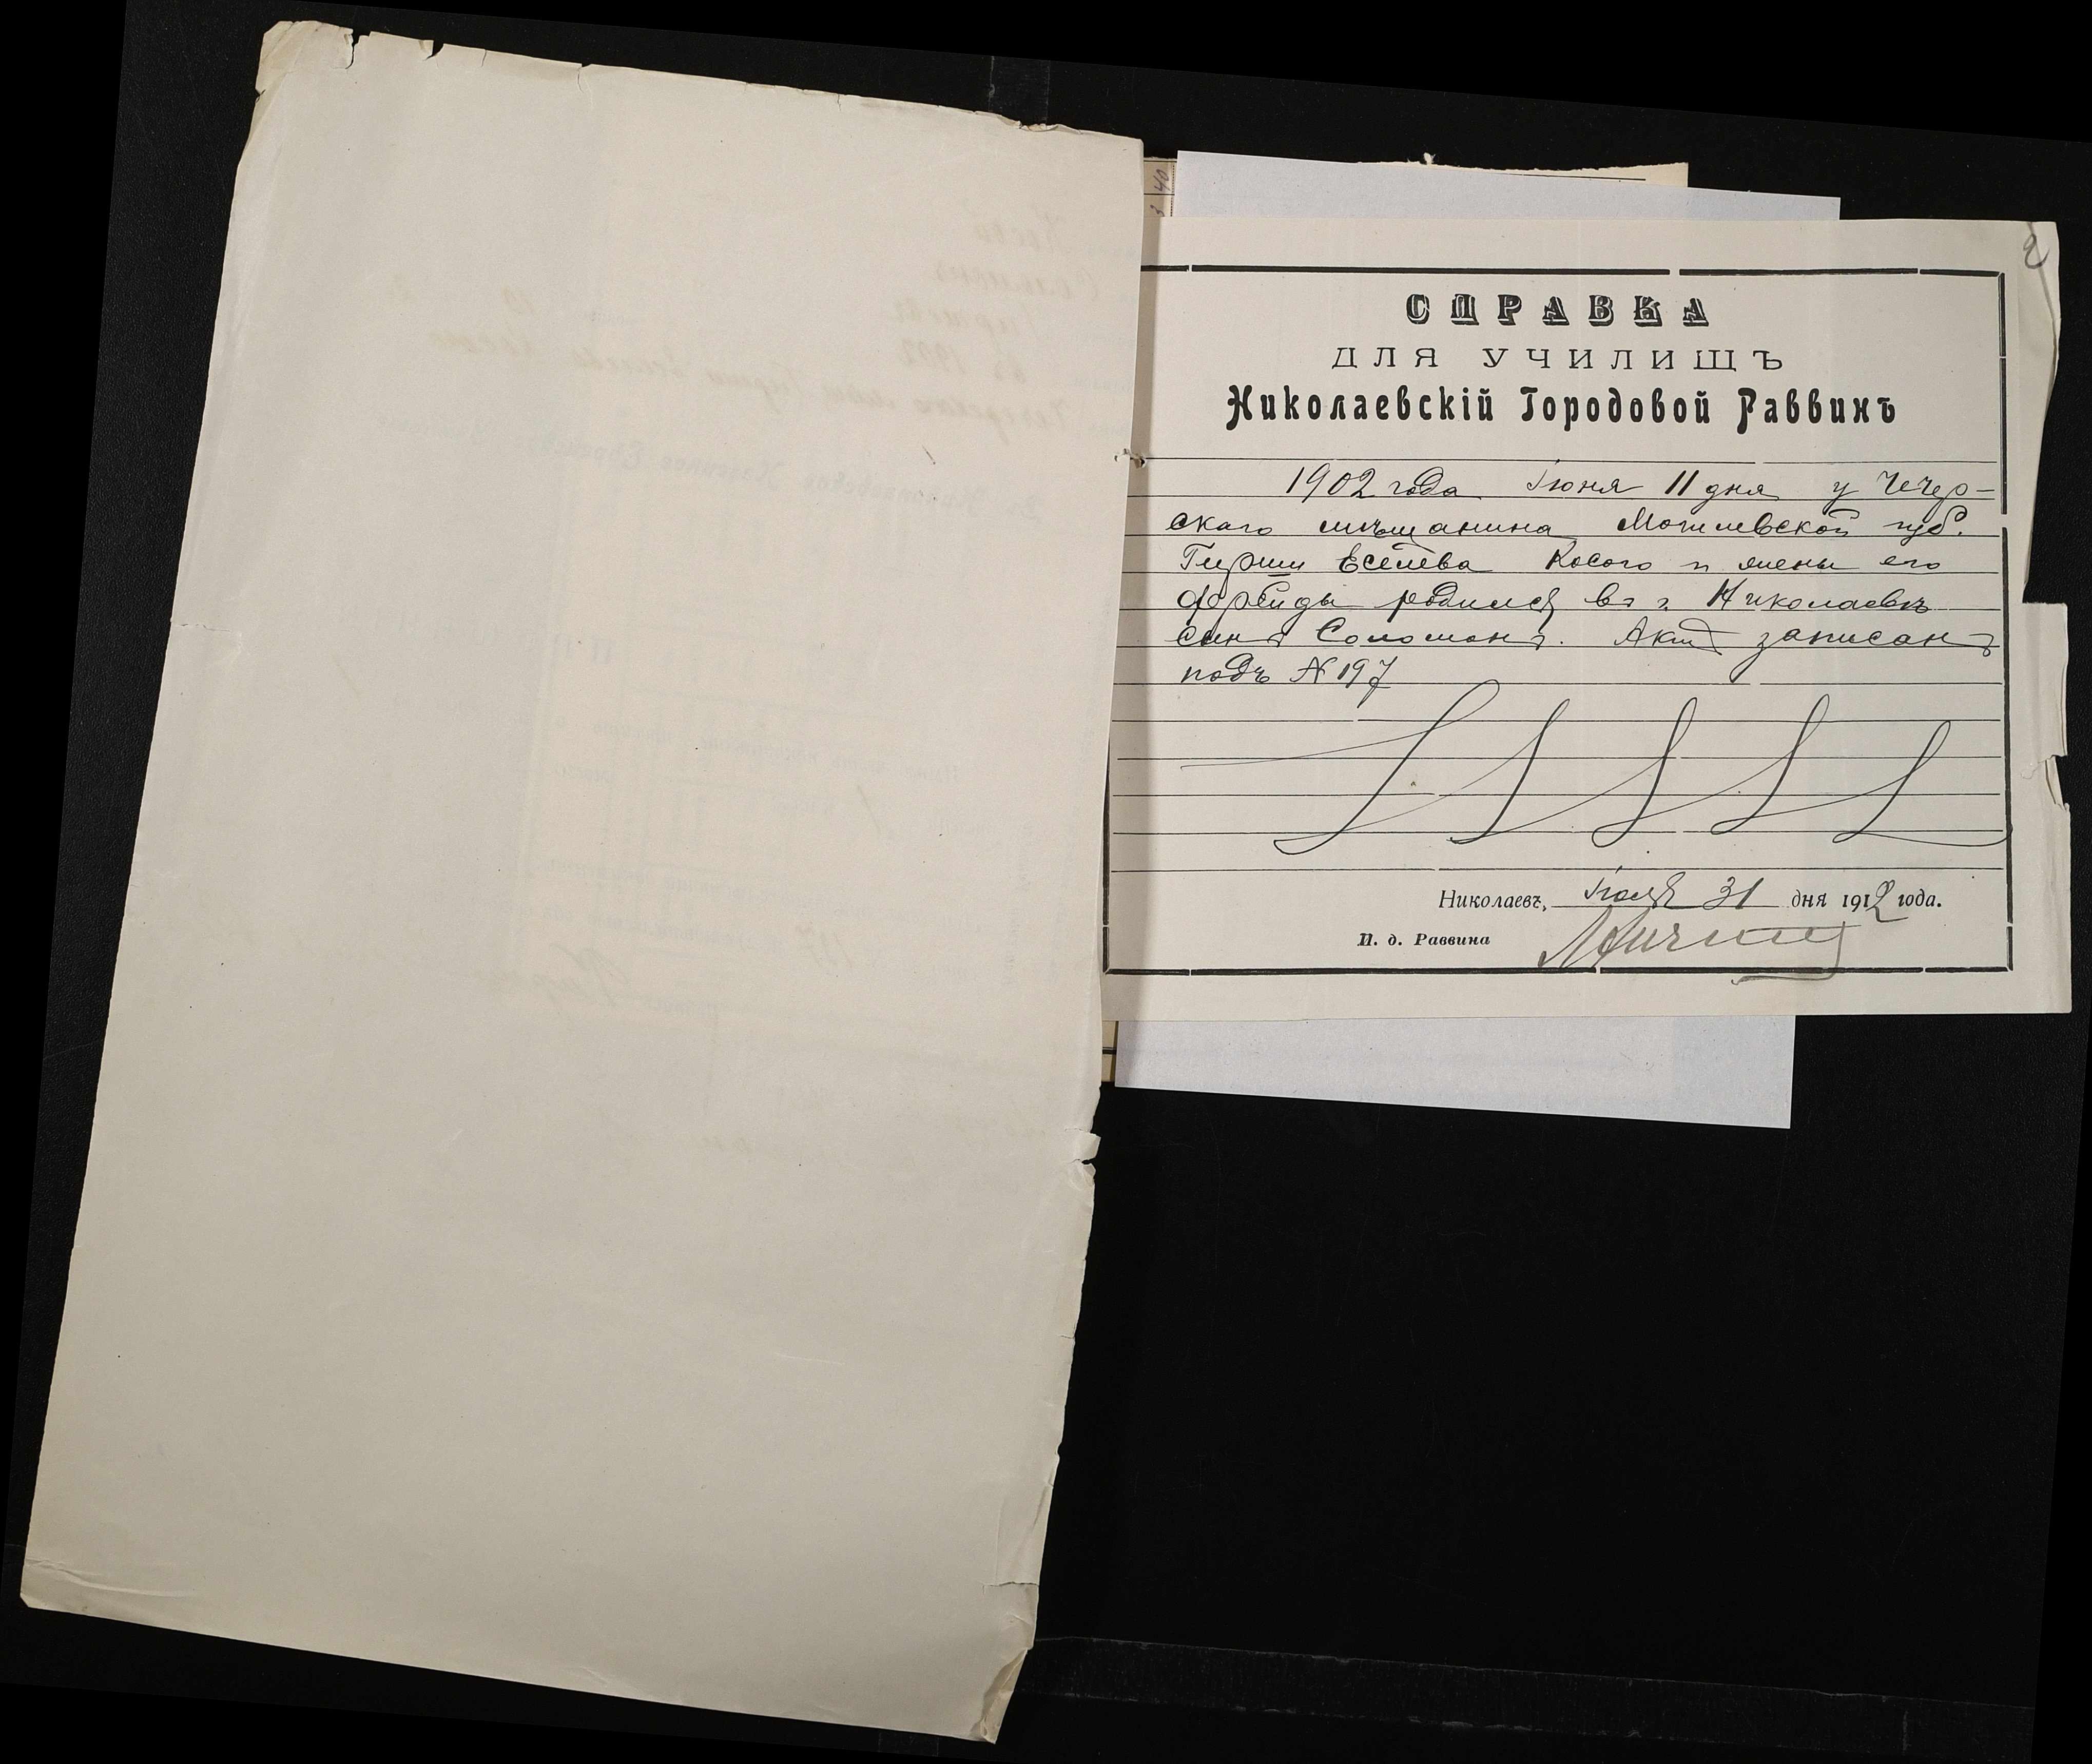 2
СПРАВКА
ДЛЯ УЧИЛИЩЪ
Николаевскій Городовой Раввинъ
1902 года Іюня 11 дня у Чечер-
скаго мѣщанина Могилевской губ.
Гирши Еселева Косого и жены его
Фрейды родился въ г. Николаевѣ
сынъ Соломонъ. Актъ записанъ
подъ № 197
Николаевъ, Іюля 31 дня 1912 года.
И. д. Раввина